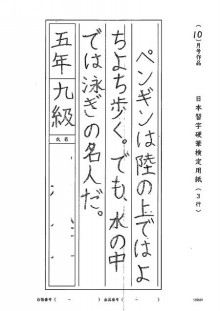 (10)月号作品
日本習字硬筆検定用紙(3行)
ペンギンは陸の上ではよ
ちよち歩く。でも、水の中
では泳ぎの名人だ。
五年 九級
氏名